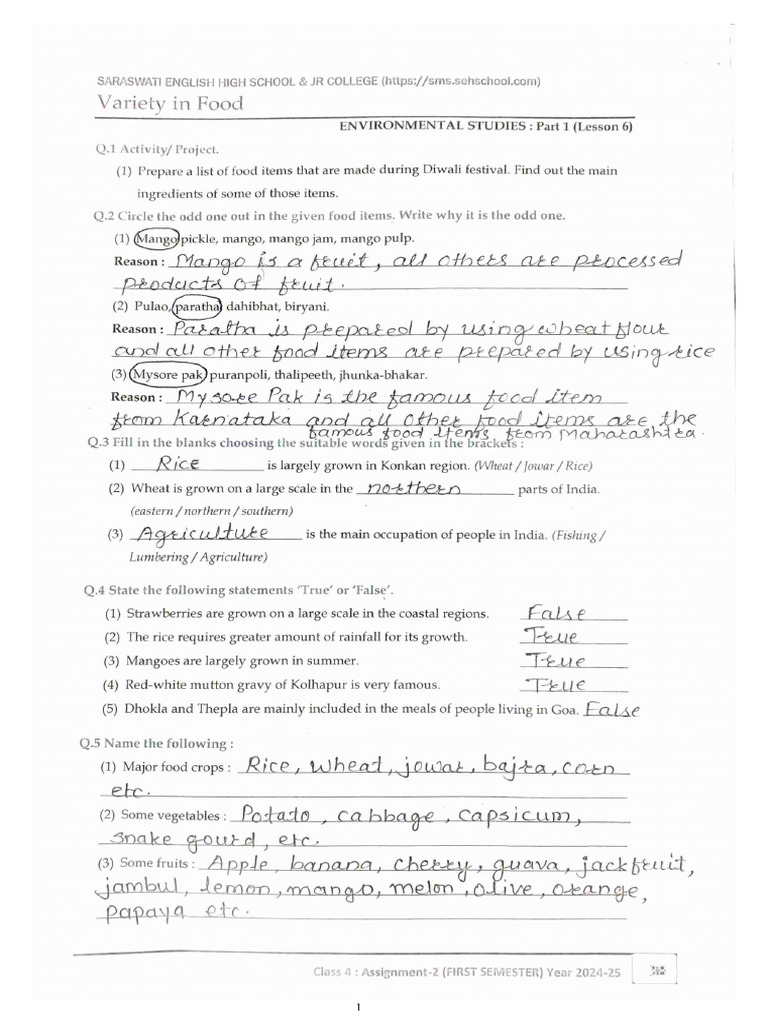 SARASWATI ENGLISH HIGH SCHOOL & JR COLLEGE (https://sms.sehschool.com)
Variety in Food
ENVIRONMENTAL STUDIES : Part 1 (Lesson 6)
Q.1 Activity/ Project.
(1) Prepare a list of food items that are made during Diwali festival. Find out the main
ingredients of some of those items.
Q.2 Circle the odd one out in the given food items. Write why it is the odd one.
(1) Mango pickle, mango, mango jam, mango pulp.
Reason : Mango is a fruit, all others are processed
products of fruit.
(2) Pulao, paratha dahibhat, biryani.
Reason : Paratha is prepared by using wheat flour
and all other food items are prepared by using rice
(3) Mysore pak, puranpoli, thalipeeth, jhunka-bhakar.
Reason : Mysore Pak is the famous food item
from Karnataka and all other food items are the
famous food items from Maharashtra.
Q.3 Fill in the blanks choosing the suitable words given in the brackets :
(1) Rice is largely grown in Konkan region. (Wheat / Jowar / Rice)
(2) Wheat is grown on a large scale in the northern parts of India.
(eastern / northern / southern)
(3) Agriculture is the main occupation of people in India. (Fishing /
Lumbering / Agriculture)
Q.4 State the following statements 'True' or 'False'.
(1) Strawberries are grown on a large scale in the coastal regions. False
(2) The rice requires greater amount of rainfall for its growth. True
(3) Mangoes are largely grown in summer. True
(4) Red-white mutton gravy of Kolhapur is very famous. True
(5) Dhokla and Thepla are mainly included in the meals of people living in Goa. False
Q.5 Name the following :
(1) Major food crops : Rice, wheat, jowar, bajra, corn
etc.
(2) Some vegetables : Potato, cabbage, capsicum,
snake gourd, etc.
(3) Some fruits : Apple, banana, cherry, guava, jackfruit,
jambul, lemon, mango, melon, olive, orange,
papaya etc.
Class 4 : Assignment-2 (FIRST SEMESTER) Year 2024-25
1